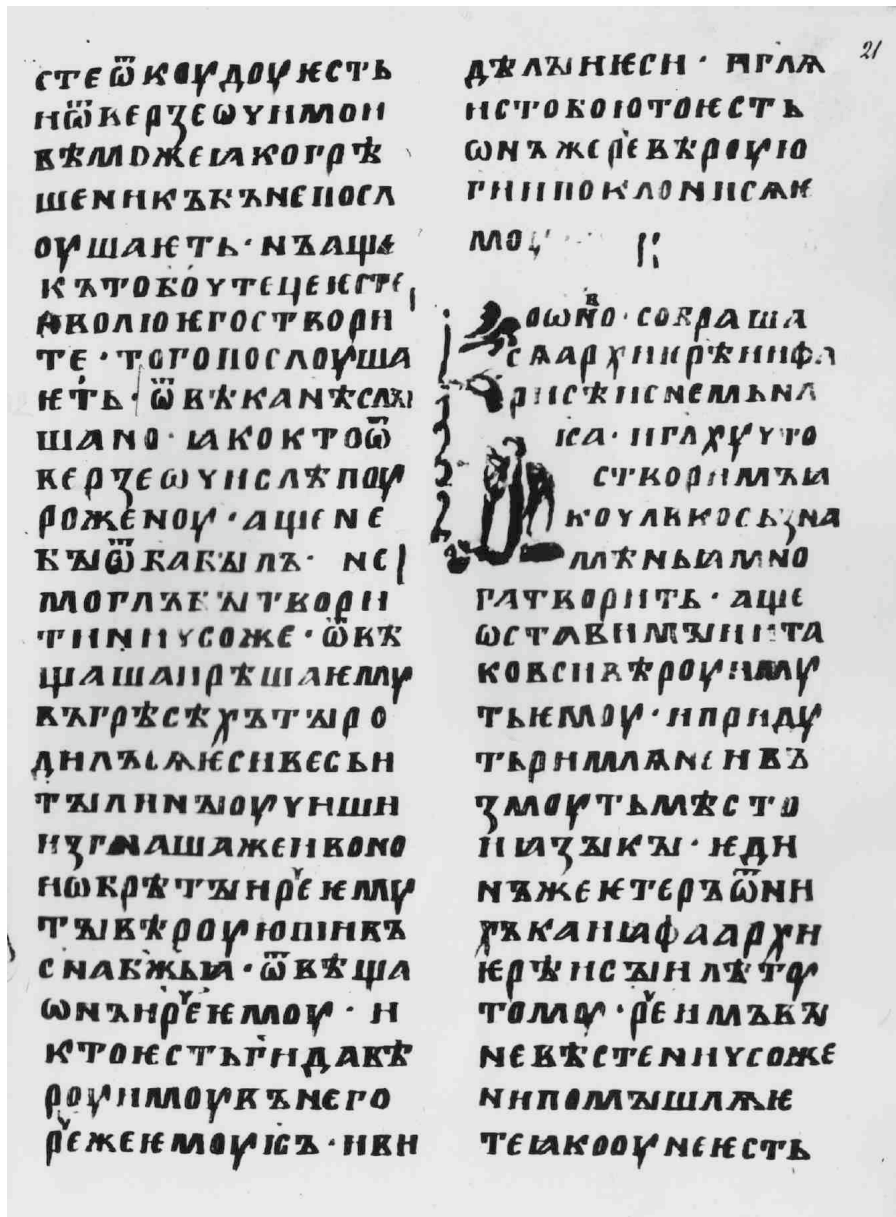 21
стеѿкоудоуѥсть
иѿверзеочимои
вѣможеꙗкогрѣ
шеникъкънепосл
оушаѥть·нъаще
къто
ꙗволюѥгоствори
те·тогопослоуша
ѥть·ѿвѣканѣслꙑ
шано·ꙗкоктоѿ
верзеѡчислѣпоу
роженоу·ащене
бꙑѿбабꙑлъ·не
моглъбꙑтвори
тиничсоже·ѿвѣ
щашаирѣшаѥму
въгрѣсѣхътꙑро
дилъсѧѥсивесьи
тꙑлинꙑоучиши
изгнашажеивоно
иѡбрѣтꙑирⷱеѥму
тꙑвѣроуюшивъ
снабж҃ьꙗ·ѿвѣща
ѡнъирⷱеѥмоу·и
ктоѥстьг҃идавѣ
роуимоувънего
рⷱежеѥмоуіс҃ъ·иви
дѣлꙑиѥси·иглѧ
истобоютоѥсть
ѡнъжерⷱевѣроую
г҃ииспоклонисѧѥ
моу
оѡнⷡо·собраша
сѧархиирѣиифа
рисѣиснемьна
іса·иглхучто
створимъꙗ
коульвкосьзна
мѣньꙗмно
гатворить·аще
ѡставимꙑиита
ковсивѣроуиму
тьѥмоу·ипридꙋ
тьримлѧнеивъ
змоутьмѣсто
иꙗзꙑкꙑ·ѥди
нъжеѥтеръѿни
хъкаиꙗфаархи
ѥрѣисꙑилѣтоу
томоу·рⷱеимъвꙑ
невѣстеничсоже
нипомꙑшлѧѥ
теꙗкооунеѥсть